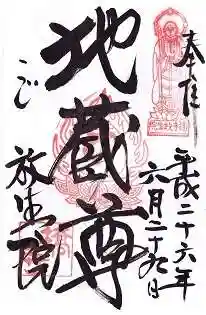 奉拝
平成二十六年
六月二十九日
地蔵尊
うじ
放生院